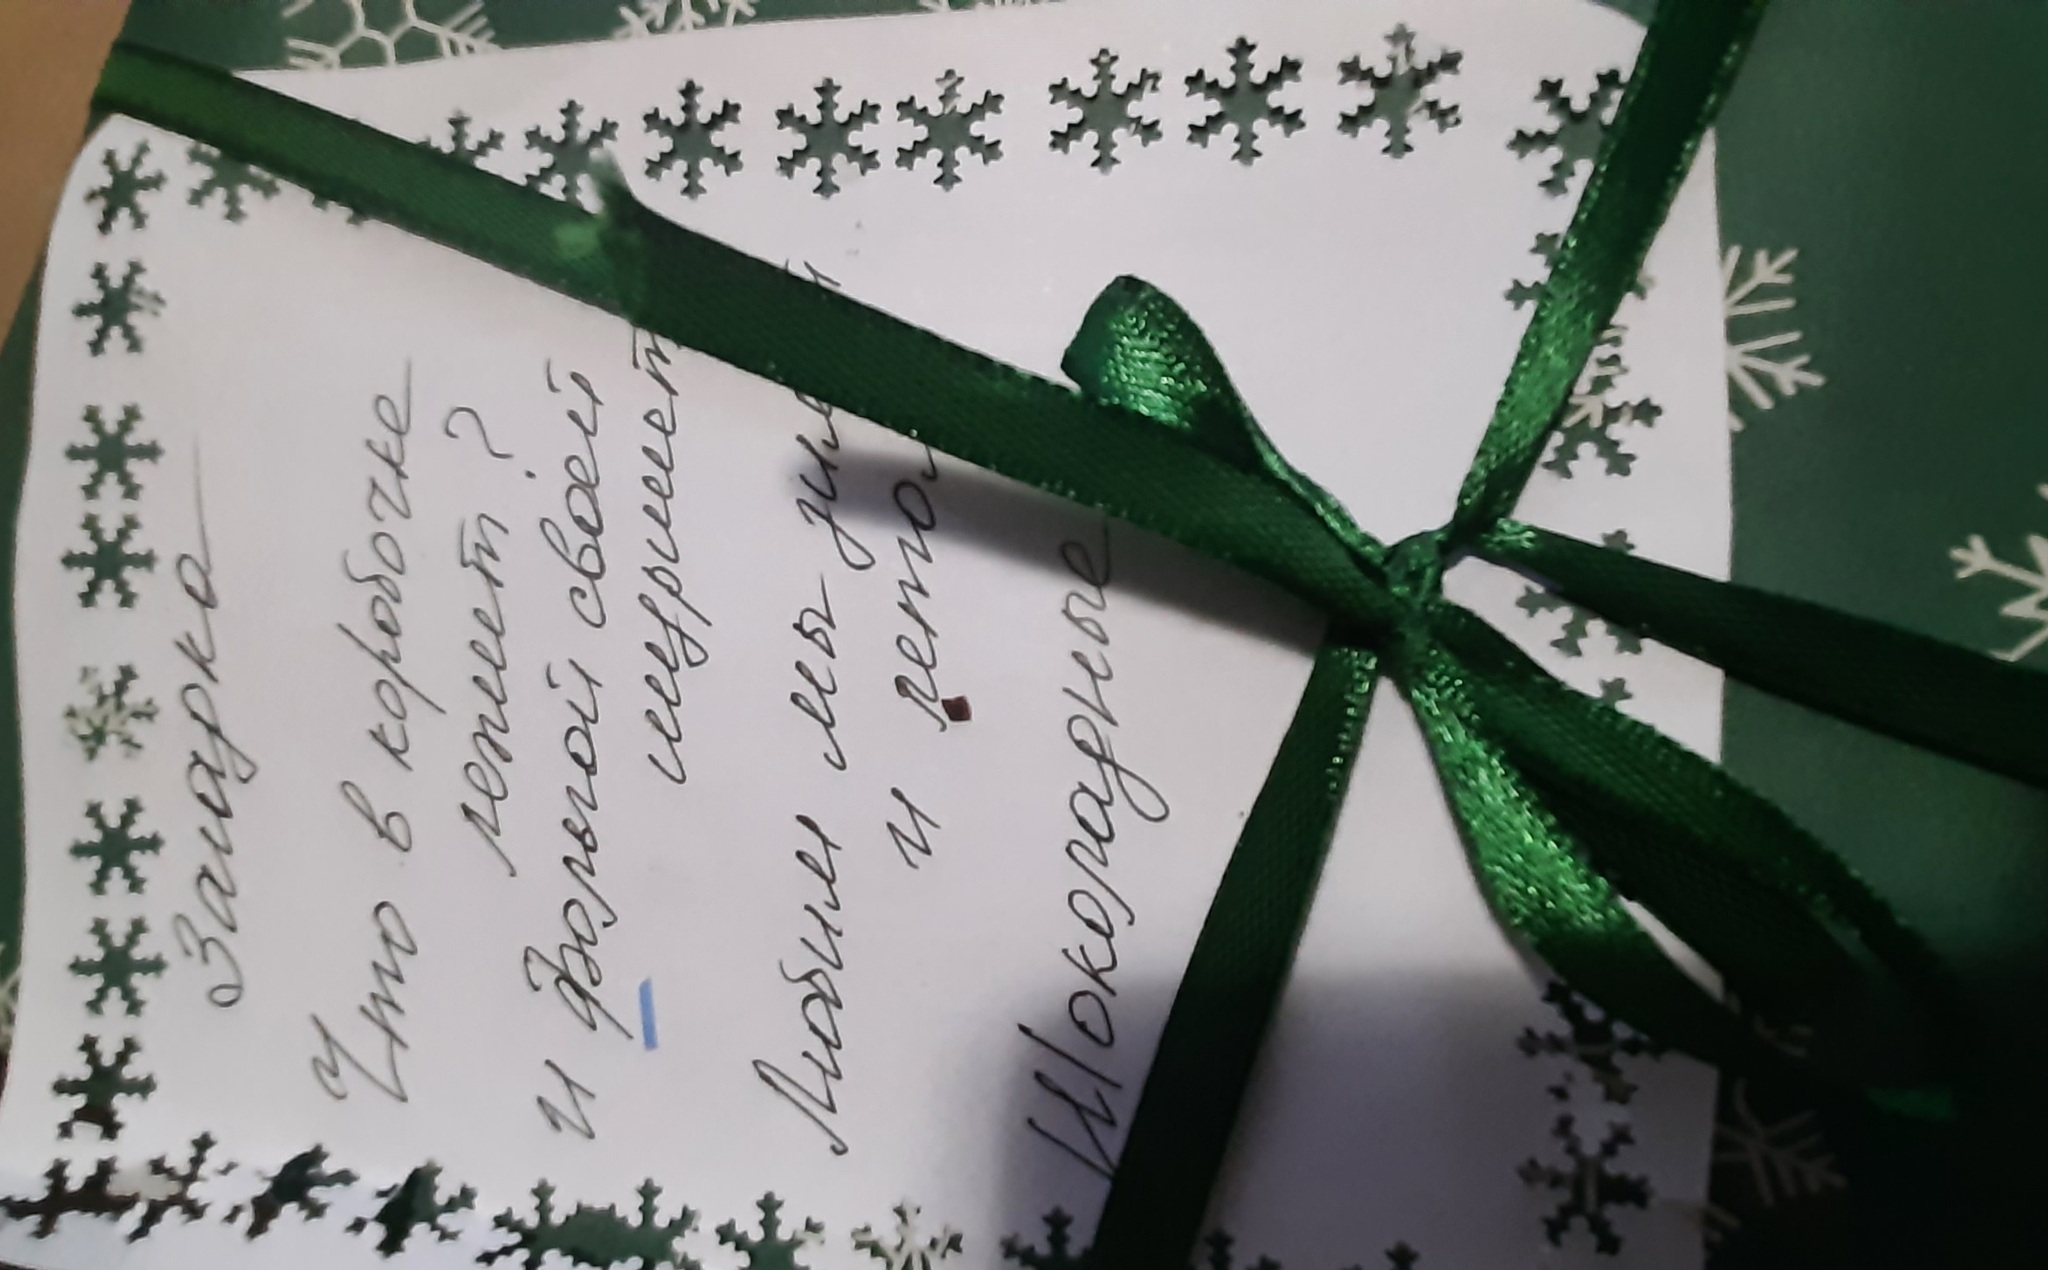 Загадка
Что в коробочке
лежит?
И фольгой своей
шуршит
Любим мы
и
Шоколадные